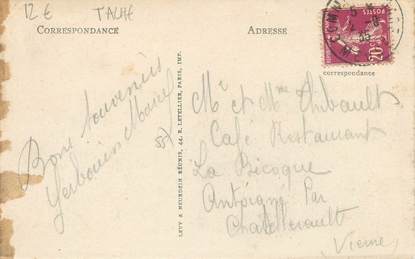 12 € TACHE
CORRESPONDANCE
ADRESSE
POSTES
20c
correspondance
Bons souvenirs
LEVY & NEURDEIN RÉUNIS, 44, R. LETELLIER, PARIS, IMP.
Mr et Mme Thibault
Café Restaurant
La Bicoque
Antoigné Par
Chatellerault
(Vienne)